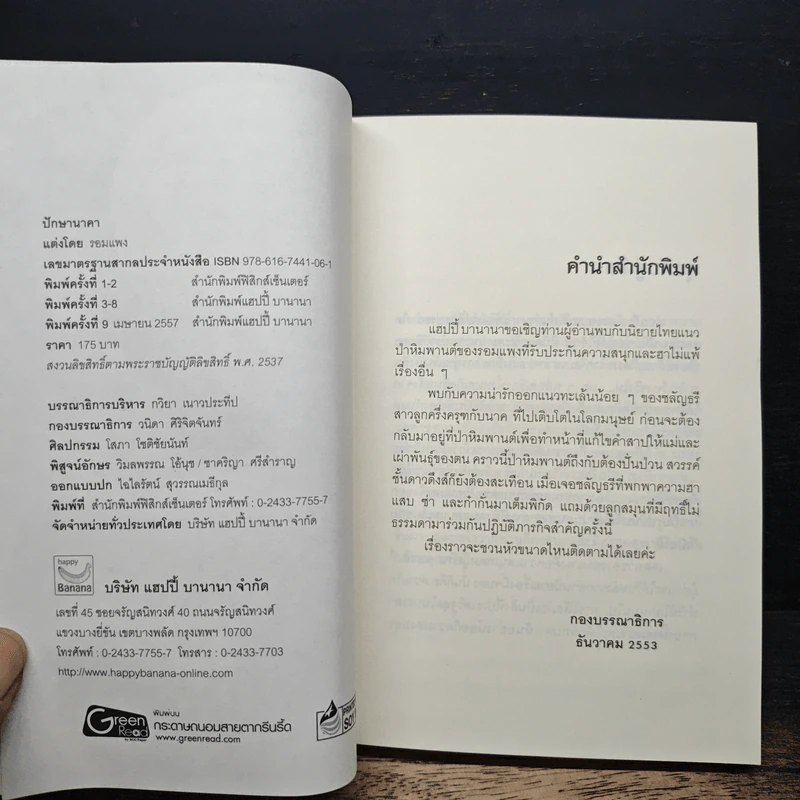 ปักษานาคา
แต่งโดย รอมแพง
เลขมาตรฐานสากลประจำหนังสือ ISBN 978-616-7441-06-1
พิมพ์ครั้งที่ 1-2 สำนักพิมพ์ฟิสิกส์เซ็นเตอร์
พิมพ์ครั้งที่ 3-8 สำนักพิมพ์แฮปปี้ บานานา
พิมพ์ครั้งที่ 9 เมษายน 2557 สำนักพิมพ์แฮปปี้ บานานา
ราคา 175 บาท
สงวนลิขสิทธิ์ตามพระราชบัญญัติลิขสิทธิ์ พ.ศ. 2537
บรรณาธิการบริหาร กวิยา เนาวประทีป
กองบรรณาธิการ วนิดา ศิริจิตจันทร์
ศิลปกรรม โสภา โชติชัยนันท์
พิสูจน์อักษร วิมลพรรณ โอ้นุช / ชาคริญา ศรีสำราญ
ออกแบบปก ไอไลรัตน์ สุวรรณเมธีกุล
พิมพ์ที่ สำนักพิมพ์ฟิสิกส์เซ็นเตอร์ โทรศัพท์ : 0-2433-7755-7
จัดจำหน่ายทั่วประเทศโดย บริษัท แฮปปี้ บานานา จำกัด
happy
Banana
บริษัท แฮปปี้ บานานา จำกัด
เลขที่ 45 ซอยจรัญสนิทวงศ์ 40 ถนนจรัญสนิทวงศ์
แขวงบางยี่ขัน เขตบางพลัด กรุงเทพฯ 10700
โทรศัพท์ : 0-2433-7755-7 โทรสาร : 0-2433-7703
http://www.happybanana-online.com
Green
Read
พิมพ์บน
กระดาษถนอมสายตากรีนรี้ด
www.greenread.com
คำนำสำนักพิมพ์
แฮปปี้ บานานาขอเชิญท่านผู้อ่านพบกับนิยายไทยแนว
ป่าหิมพานต์ของรอมแพงที่รับประกันความสนุกและฮาไม่แพ้
เรื่องอื่น ๆ
พบกับความน่ารักออกแนวทะเล้นน้อย ๆ ของชลัญธรี
สาวลูกครึ่งครุฑกับนาค ที่ไปเติบโตในโลกมนุษย์ ก่อนจะต้อง
กลับมาอยู่ที่ป่าหิมพานต์เพื่อทำหน้าที่แก้ไขคำสาปให้แม่และ
เผ่าพันธุ์ของตน คราวนี้ป่าหิมพานต์ถึงกับต้องปั่นป่วน สวรรค์
ชั้นดาวดึงส์ก็ยังต้องสะเทือน เมื่อเจอชลัญธรีที่พกพาความฮา
แสบ ซ่า และก๋ากั่นมาเต็มพิกัด แถมด้วยลูกสมุนที่มีฤทธิ์ไม่
ธรรมดามาร่วมกันปฏิบัติภารกิจสำคัญครั้งนี้
เรื่องราวจะชวนหัวขนาดไหนติดตามได้เลยค่ะ
กองบรรณาธิการ
ธันวาคม 2553